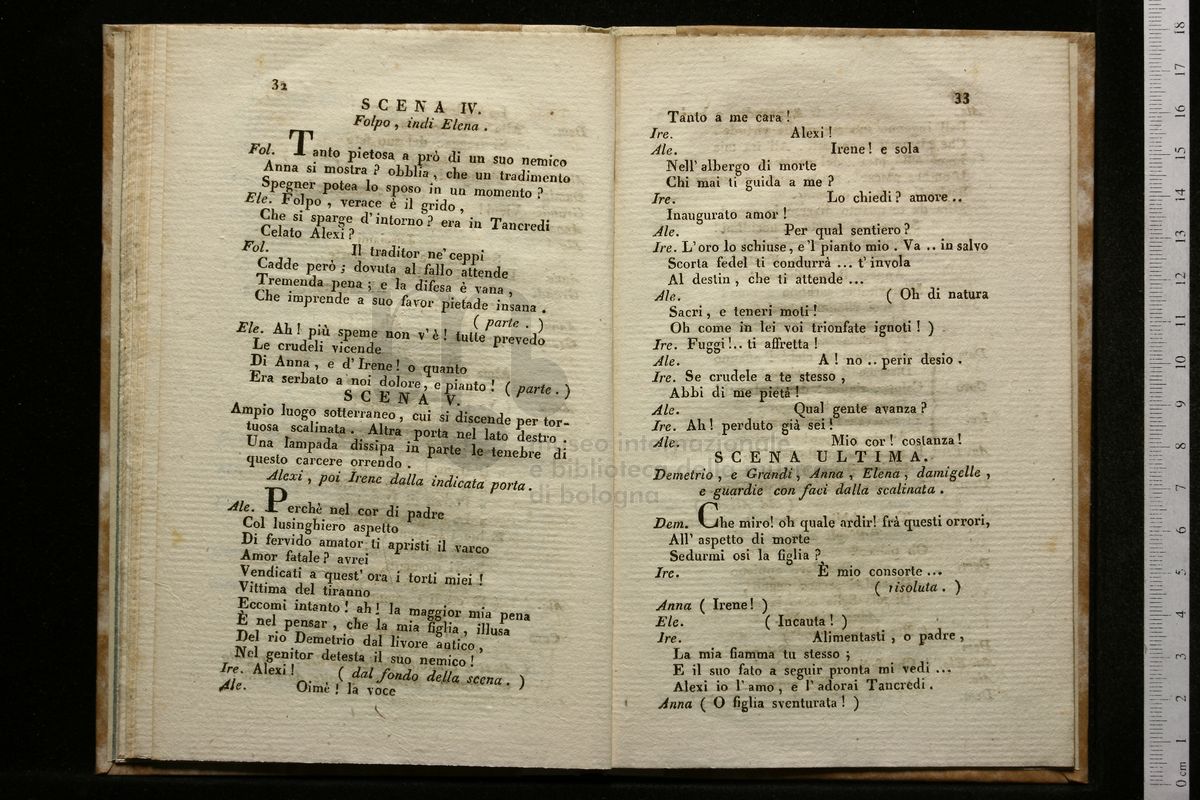 32
SCENA IV.
Folpo, indi Elena.
Fol. Tanto pietosa a prò di un suo nemico
Anna si mostra? obblia, che un tradimento
Spegner potea lo sposo in un momento?
Ele. Folpo, verace è il grido,
Che si sparge d'intorno? era in Tancredi
Celato Alexi?
Fol. Il traditor ne' ceppi
Cadde però; dovuta al fallo attende
Tremenda pena; e la difesa è vana,
Che imprende a suo favor pietade insana.
(parte.)
Ele. Ah! più speme non v'è! tutte prevedo
Le crudeli vicende
Di Anna, e d'Irene! o quanto
Era serbato a noi dolore, e pianto! (parte.)
SCENA V.
Ampio luogo sotterraneo, cui si discende per tor-
tuosa scalinata. Altra porta nel lato destro.
Una lampada dissipa in parte le tenebre di
questo carcere orrendo.
Alexi, poi Irene dalla indicata porta.
Ale. Perchè nel cor di padre
Col lusinghiero aspetto
Di fervido amator ti apristi il varco
Amor fatale? avrei
Vendicati a quest' ora i torti miei!
Vittima del tiranno
Eccomi intanto! ah! la maggior mia pena
È nel pensar, che la mia figlia, illusa
Del rio Demetrio dal livore antico,
Nel genitor detesta il suo nemico!
Ire. Alexi! (dal fondo della scena.)
Ale. Oimè! la voce
33
Tanto a me cara!
Ire. Alexi!
Ale. Irene! e sola
Nell' albergo di morte
Chi mai ti guida a me?
Ire. Lo chiedi? amore..
Inaugurato amor!
Ale. Per qual sentiero?
Ire. L'oro lo schiuse, e'l pianto mio. Va .. in salvo
Scorta fedel ti condurrà ... t'invola
Al destin, che ti attende ...
Ale. (Oh di natura
Sacri, e teneri moti!
Oh come in lei voi trionfate ignoti!)
Ire. Fuggi!.. ti affretta!
Ale. A! no .. perir desio.
Ire. Se crudele a te stesso,
Abbi di me pietà!
Ale. Qual gente avanza?
Ire. Ah! perduto già sei!
Ale. Mio cor! costanza!
SCENA ULTIMA.
Demetrio, e Grandi, Anna, Elena, damigelle,
e guardie con faci dalla scalinata.
Dem. Che miro! oh quale ardir! frà questi orrori,
All' aspetto di morte
Sedurmi osi la figlia?
Ire. È mio consorte ...
(risoluta.)
Anna (Irene!)
Ele. (Incauta!)
Ire. Alimentasti, o padre,
La mia fiamma tu stesso;
E il suo fato a seguir pronta mi vedi ...
Alexi io l'amo, e l'adorai Tancredi.
Anna (O figlia sventurata!)
museo internazionale
e biblioteca della
di bologna
0 cm 1 2 3 4 5 6 7 8 9 10 11 12 13 14 15 16 17 18